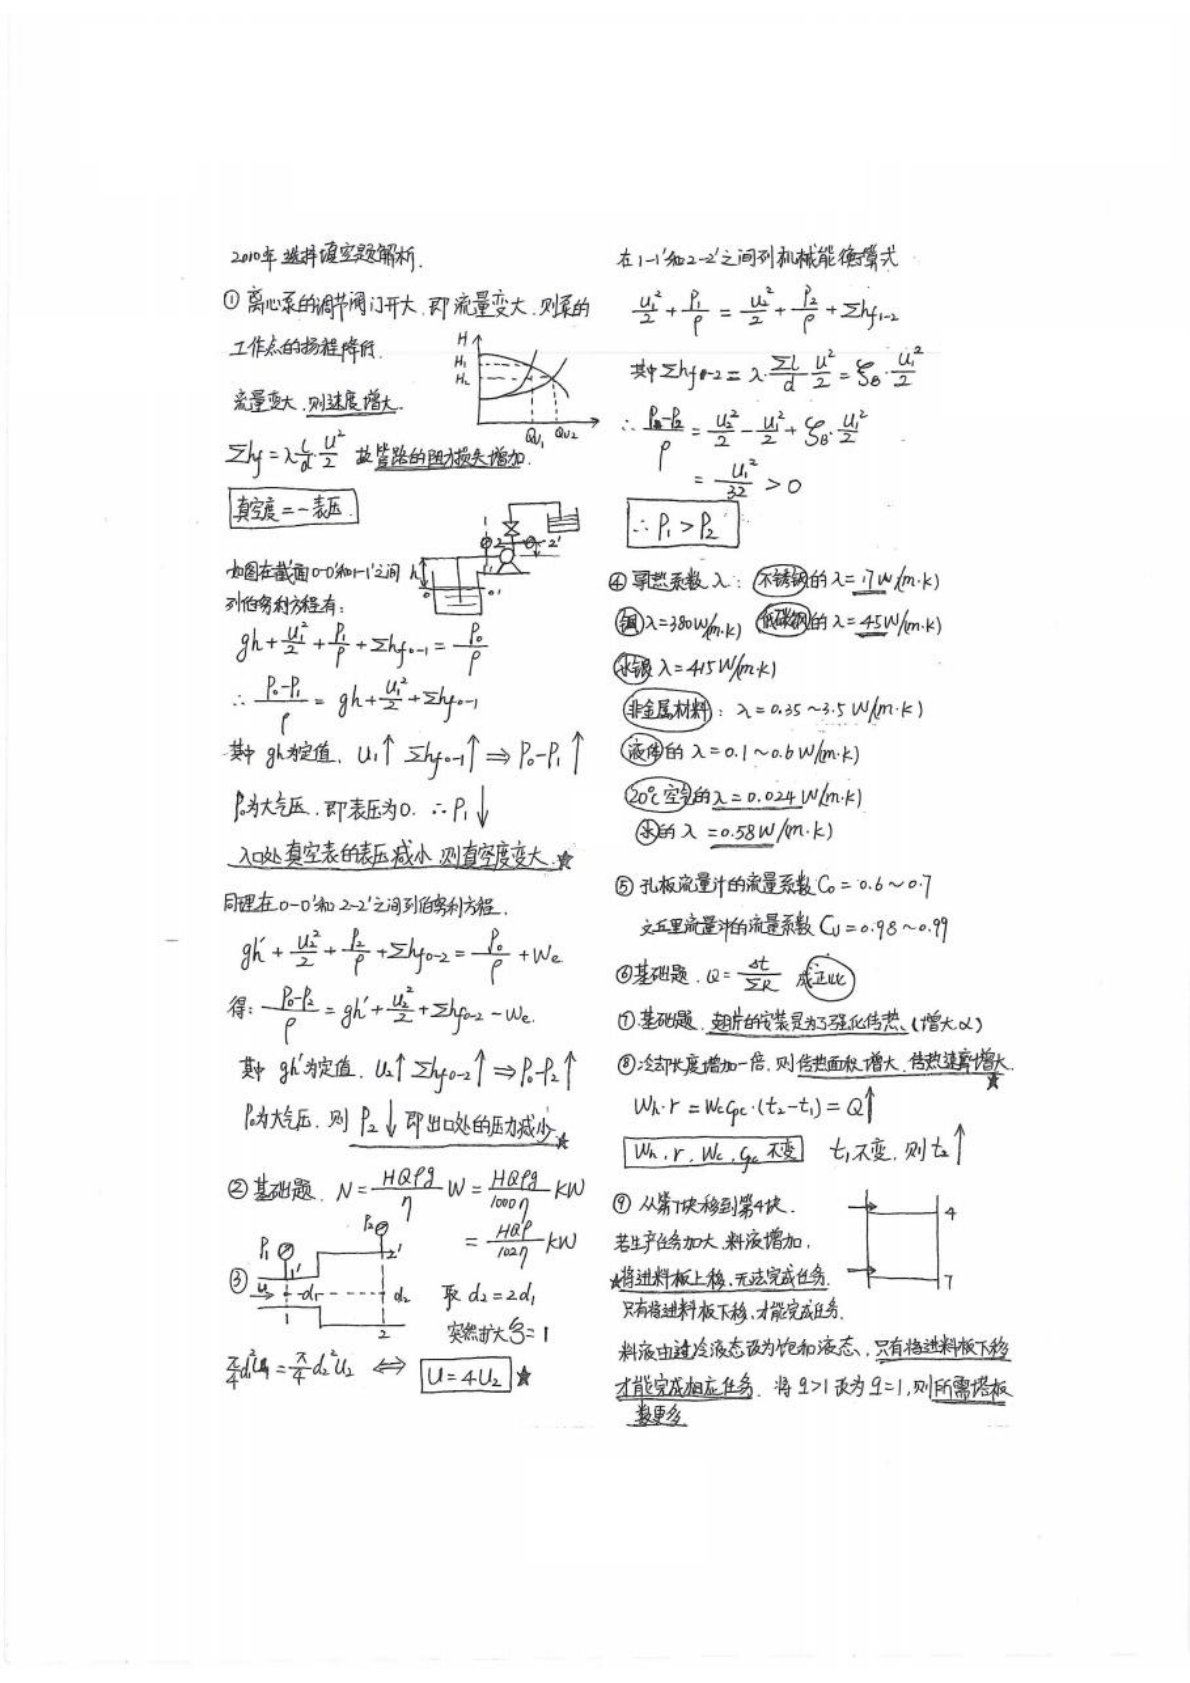 2010年选择填空题解析.
① 离心泵的调节阀门开大,即流量变大,则泵的
工作点的扬程降低.
流量变大,则速度增大.
H
H₁
H₂
Qv₁ Qv₂
Σhf = λ l/d · u²/2 故管路的阻力损失增加.
真空度 = -表压
如图在截面0-0'和1-1'之间
列伯努利方程有:
h
0 0'
2 2'
gh + u₁²/2 + P₁/ρ + Σhf₀₋₁ = P₀/ρ
∴ (P₀-P₁)/ρ = gh + u₁²/2 + Σhf₀₋₁
其中 gh为定值, u₁↑ Σhf₀₋₁↑ ⇒ P₀-P₁↑
P₀为大气压,即表压为0. ∴ P₁↓
入口处真空表的表压减小,则真空度变大.★
同理在0-0'和2-2'之间列伯努利方程.
gh' + u₂²/2 + P₂/ρ + Σhf₀₋₂ = P₀/ρ + We
得: (P₀-P₂)/ρ = gh' + u₂²/2 + Σhf₀₋₂ - We.
其中 gh'为定值, u₂↑ Σhf₀₋₂↑ ⇒ P₀-P₂↑
P₀为大气压,则 P₂↓ 即出口处的压力减少★
② 基础题. N = HQρg/η W = HQρg/1000η KW
= HQρ/102η KW
③
P₁ P₂
u d₁ d₂
1 1' 2 2'
取 d₂=2d₁
突然扩大 ξ=1
π/4 d₁²u₁ = π/4 d₂²u₂ ⇔ u=4u₂ ★
在1-1'和2-2'之间列机械能衡算式
u₁²/2 + P₁/ρ = u₂²/2 + P₂/ρ + Σhf₁₋₂
其中 Σhf₁₋₂ = λ · Σl/d · u²/2 = ξ · u₁²/2
∴ (P₁-P₂)/ρ = u₂²/2 - u₁²/2 + ξ · u₁²/2
= u₁²/32 > 0
∴ P₁ > P₂
④ 导热系数λ: 不锈钢的λ=17W/(m·k)
铜 λ=380W/(m·k) 低碳钢的λ=45W/(m·k)
水银 λ=415W/(m·k)
非金属材料: λ=0.35~3.5 W/(m·k)
液体的 λ=0.1~0.6 W/(m·k)
20℃空气的λ=0.024 W/(m·k)
水的 λ=0.58W/(m·k)
⑤ 孔板流量计的流量系数 C₀=0.6~0.7
文丘里流量计的流量系数 Cv=0.98~0.99
⑥ 基础题. Q = Δt/ΣR 成正比
⑦ 基础题. 翅片的安装是为了强化传热.(增大α)
⑧ 冷却长度增加一倍,则传热面积增大,传热速率增大.★
Wh·r = WcCpc·(t₂-t₁) = Q↑
Wh, r, Wc, Cpc 不变 t₁不变, 则 t₂↑
⑨ 从第7块移到第4块.
若生产任务加大,料液增加,
★将进料板上移,无法完成任务.
只有将进料板下移,才能完成任务.
4
7
料液由过冷液态改为饱和液态,只有将进料板下移
才能完成相应任务. 将 q>1 改为 q=1,则所需塔板
数更多